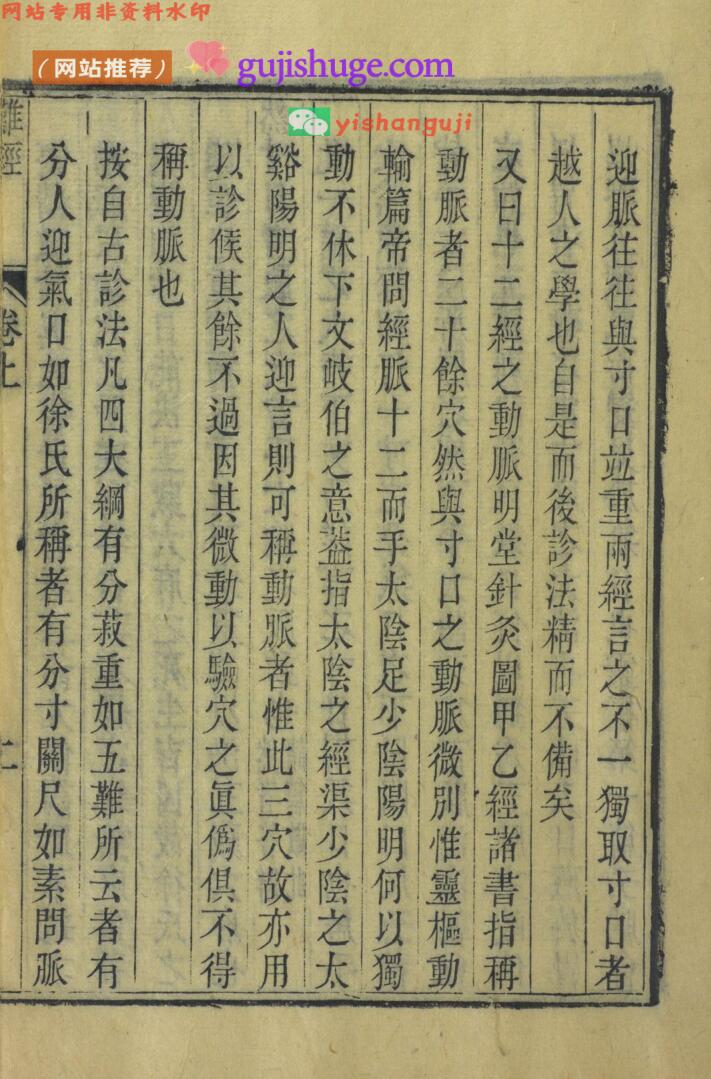 网站专用非资料水印
（网站推荐）
gujishuge.com
yishanguji
迎脈往往與寸口竝重兩經言之不一獨取寸口者
越人之學也自是而後診法精而不備矣
又曰十二經之動脈明堂針灸圖甲乙經諸書指稱
動脈者二十餘穴然與寸口之動脈微別惟靈樞動
輸篇帝問經脈十二而手太陰足少陰陽明何以獨
動不休下文岐伯之意葢指太陰之經渠少陰之太
谿陽明之人迎言則可稱動脈者惟此三穴故亦用
以診候其餘不過因其微動以驗穴之眞僞俱不得
稱動脈也
按自古診法凡四大綱有分菽重如五難所云者有
分人迎氣口如徐氏所稱者有分寸關尺如素問脈
難經
卷上
二